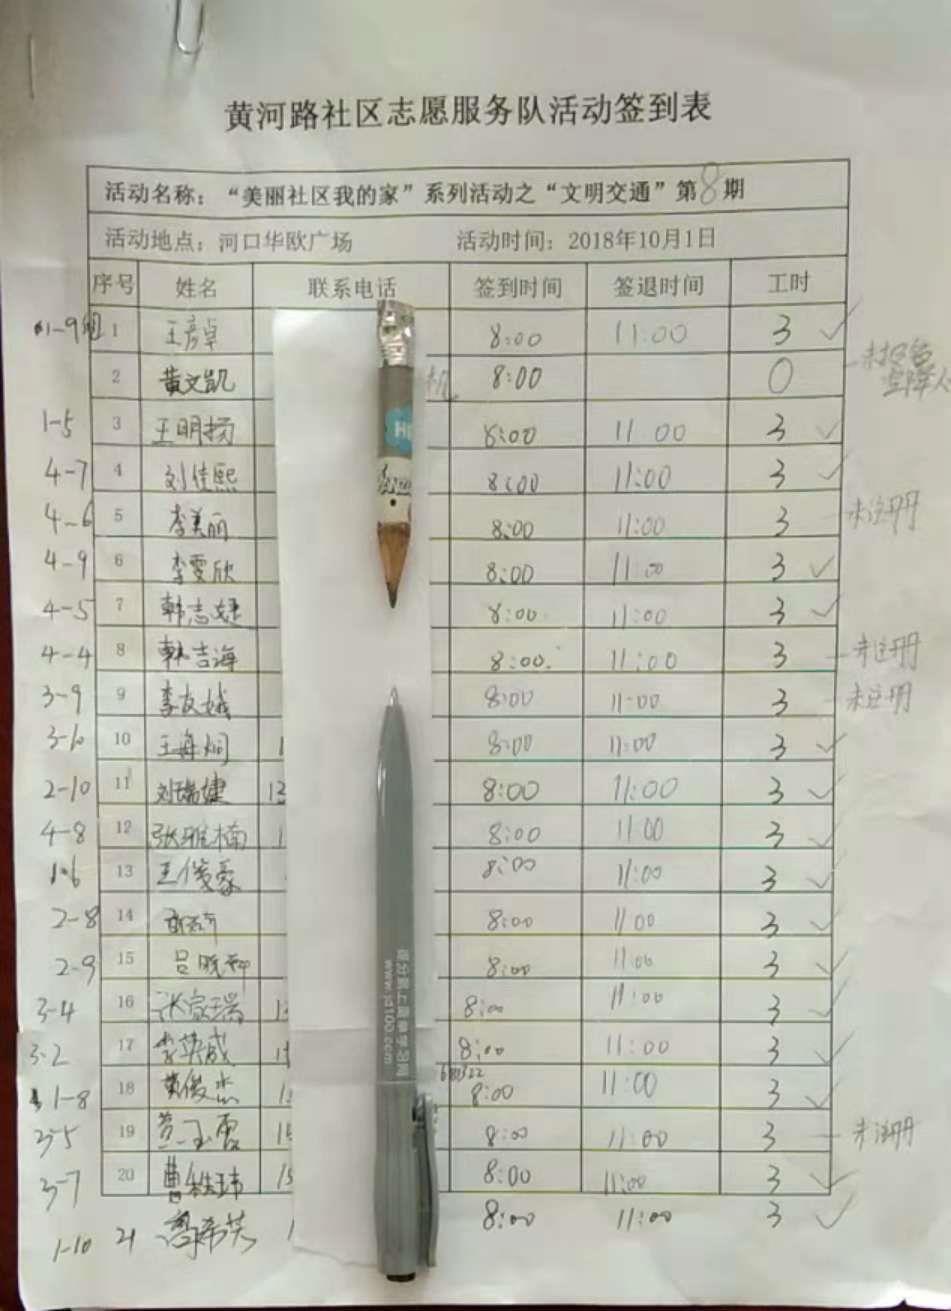 黄河路社区志愿服务队活动签到表
活动名称：“美丽社区我的家”系列活动之“文明交通”第8期
活动地点：河口华欧广场 活动时间：2018年10月1日
序号 姓名 联系电话 签到时间 签退时间 工时
1-9组 1 王彦卓 8:00 11:00 3 ✓
2 黄文凯 机 8:00 0
1-5 3 王明扬 8:00 11:00 3 ✓
4-7 4 刘佳熙 8:00 11:00 3 ✓
4-6 5 李美丽 8:00 11:00 3 未注册
4-9 6 李雯欣 8:00 11:00 3 ✓
4-5 7 韩志婕 8:00 11:00 3 ✓
4-4 8 韩吉海 8:00 11:00 3 未注册
3-9 9 李友娥 8:00 11:00 3 未注册
3-10 10 王海炯 1 8:00 11:00 3 ✓
2-10 11 刘瑞婕 13 8:00 11:00 3 ✓
4-8 12 张雅楠 1 8:00 11:00 3 ✓
1-6 13 王俊豪 8:00 11:00 3 ✓
2-8 14 8:00 11:00 3 ✓
2-9 15 吕晓 8:00 11:00 3 ✓
3-4 16 张家瑞 8:00 11:00 3 ✓
3-2 17 李英威 8:00 11:00 3 ✓
1-8 18 黄俊杰 8:00 11:00 3 ✓
3-5 19 8:00 11:00 3 未注册
3-7 20 曹轶玮 15 8:00 11:00 3 ✓
1-10 21 高希芙 1 8:00 11:00 3 ✓
www.st100.com